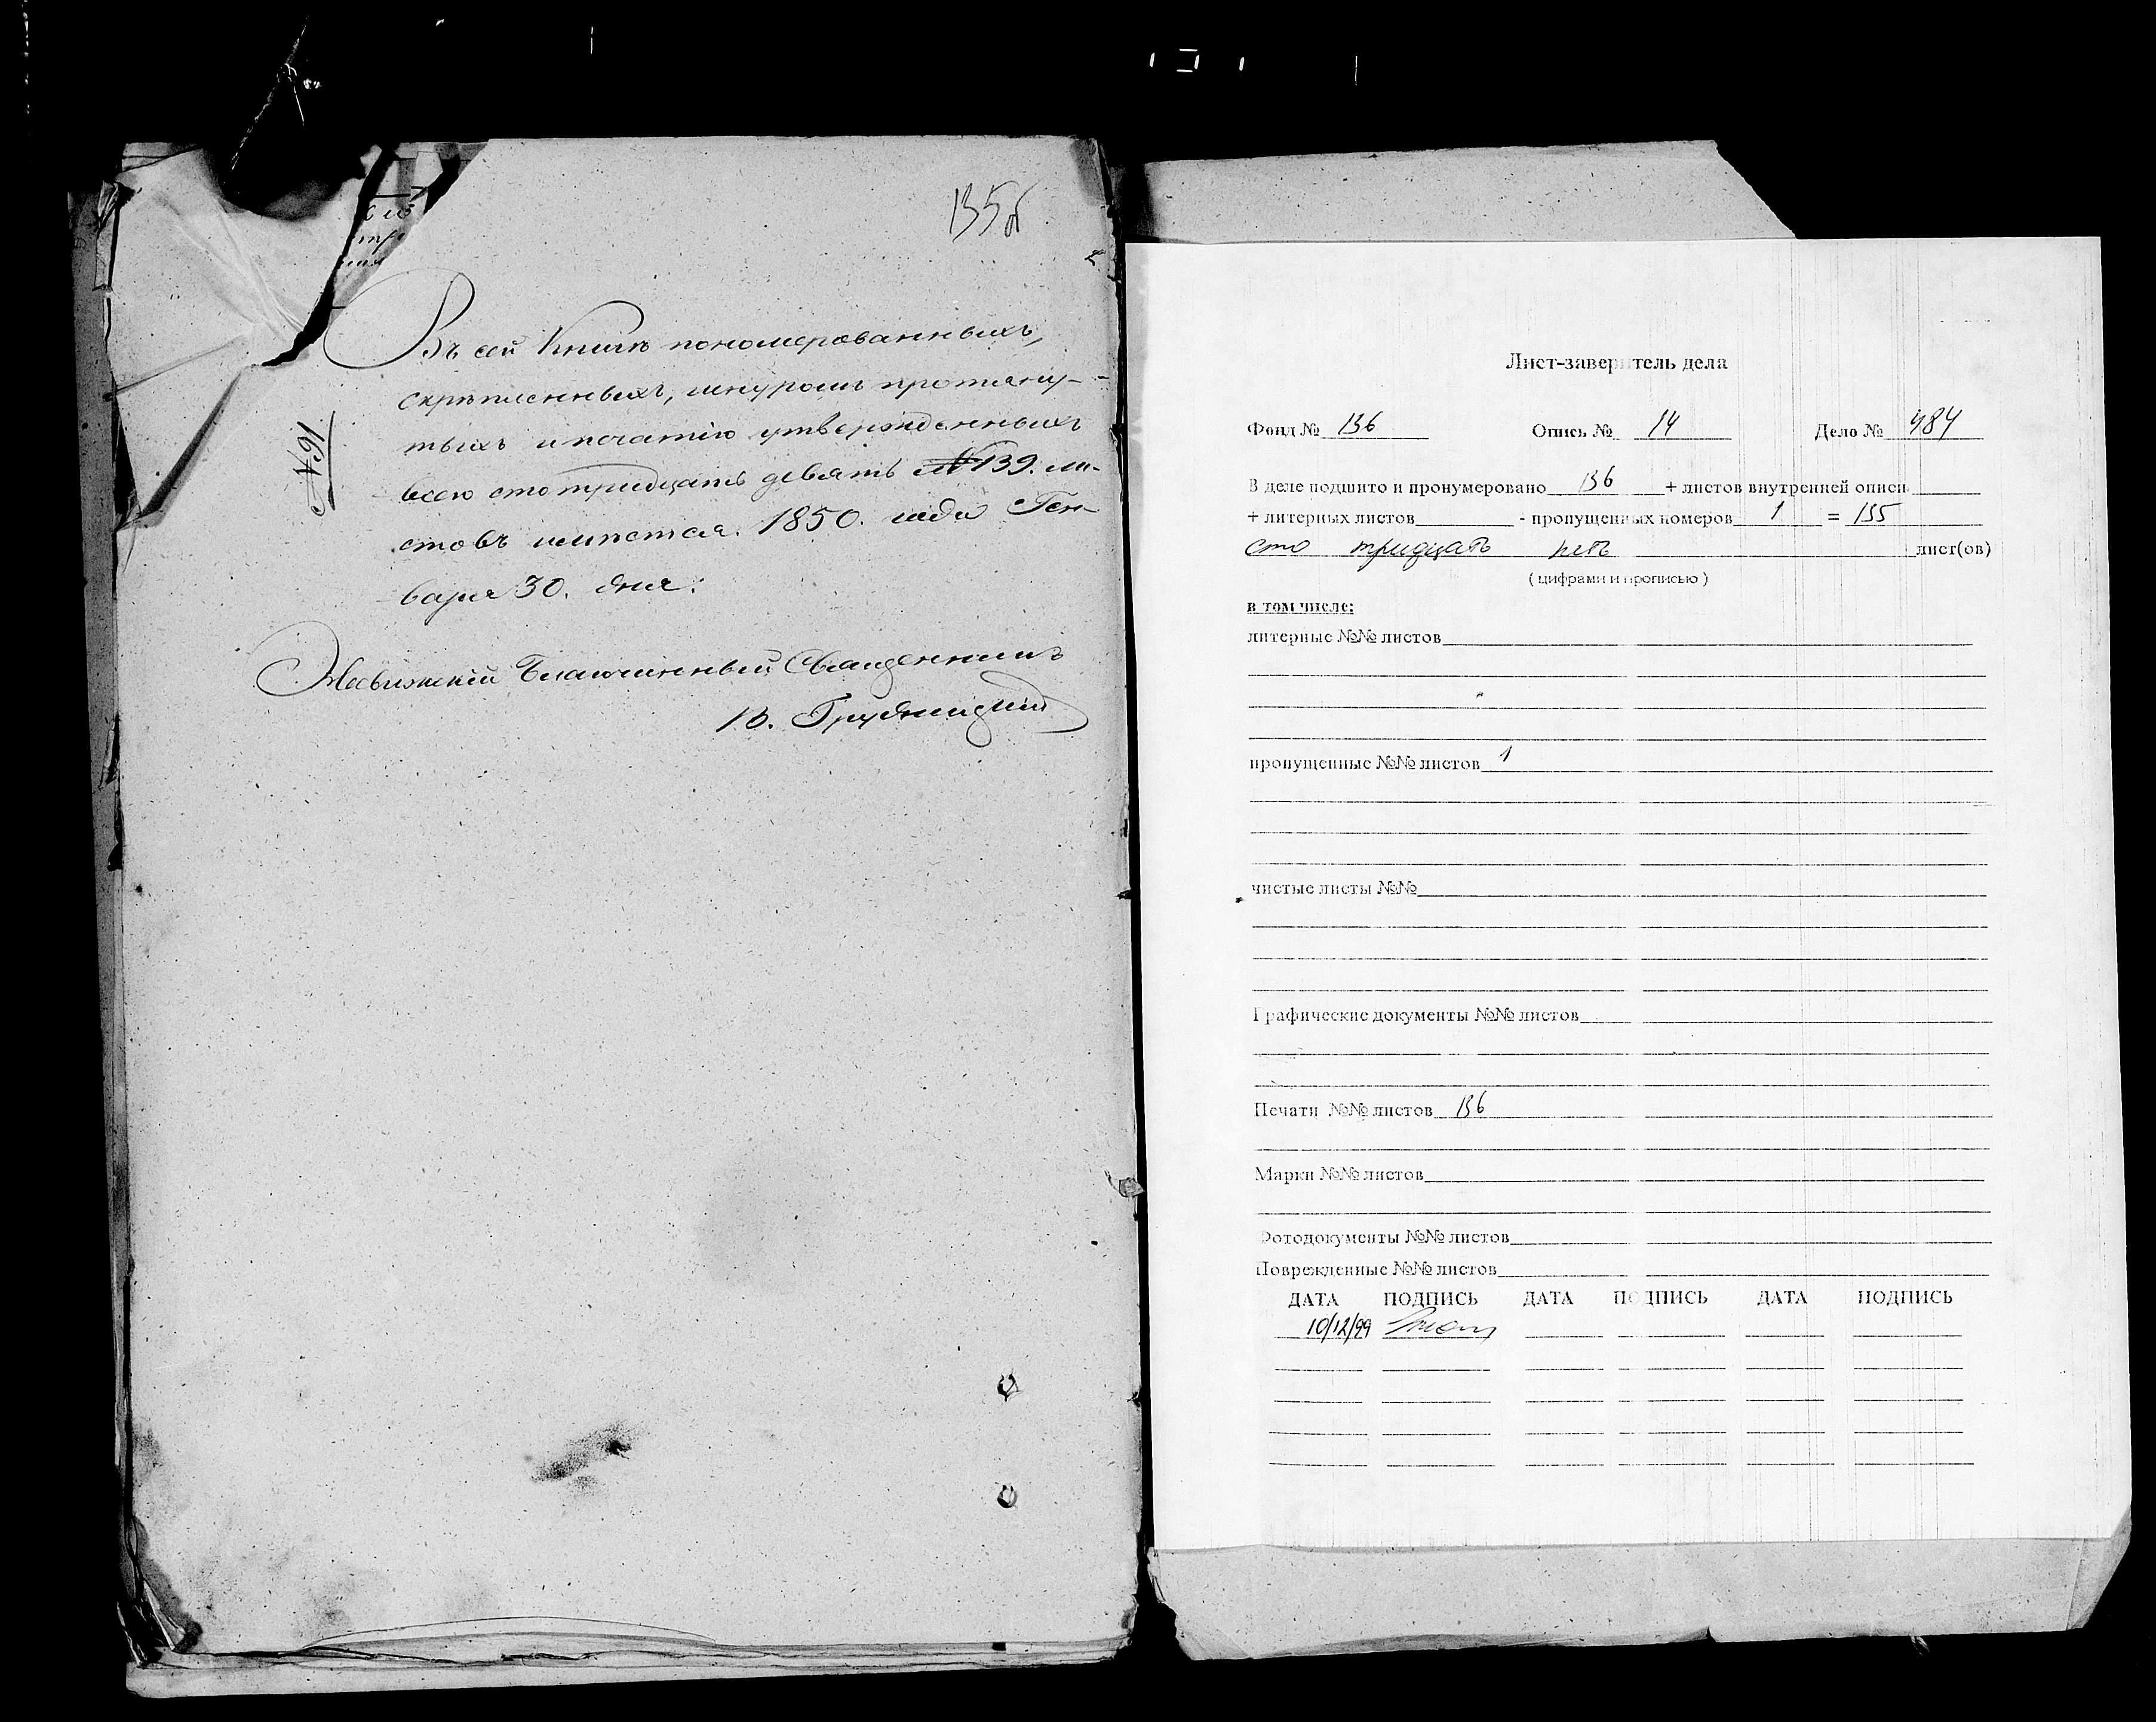 135об
Въ сей Книгѣ пономерованныхъ,
скрѣпленныхъ, шнуромъ протяну-
тыхъ и печатію утвержденныхъ
всего сто тридцать девять №139. ли-
стовъ имѣется. 1850. года Ген-
варя 30. дня:
№91
Несвижскій Благочинный Священникъ
В. Грудницкій
Лист-заверитель дела
Фонд № 136 Опись № 14 Дело № 984
В деле подшито и пронумеровано 136 + листов внутренней описи
+ литерных листов - пропущенных номеров 1 = 135
сто тридцать пять лист(ов)
( цифрами и прописью )
в том числе:
литерные №№ листов
пропущенные №№ листов 1
чистые листы №№
Графические документы №№ листов
Печати №№ листов 136
Марки №№ листов
Фотодокументы №№ листов
Поврежденные №№ листов
ДАТА ПОДПИСЬ ДАТА ПОДПИСЬ ДАТА ПОДПИСЬ
10/12/99